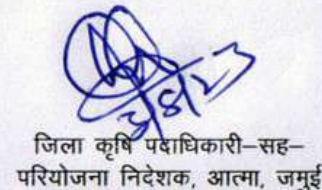 जिला कृषि पदाधिकारी–सह–
परियोजना निदेशक, आत्मा, जमुई